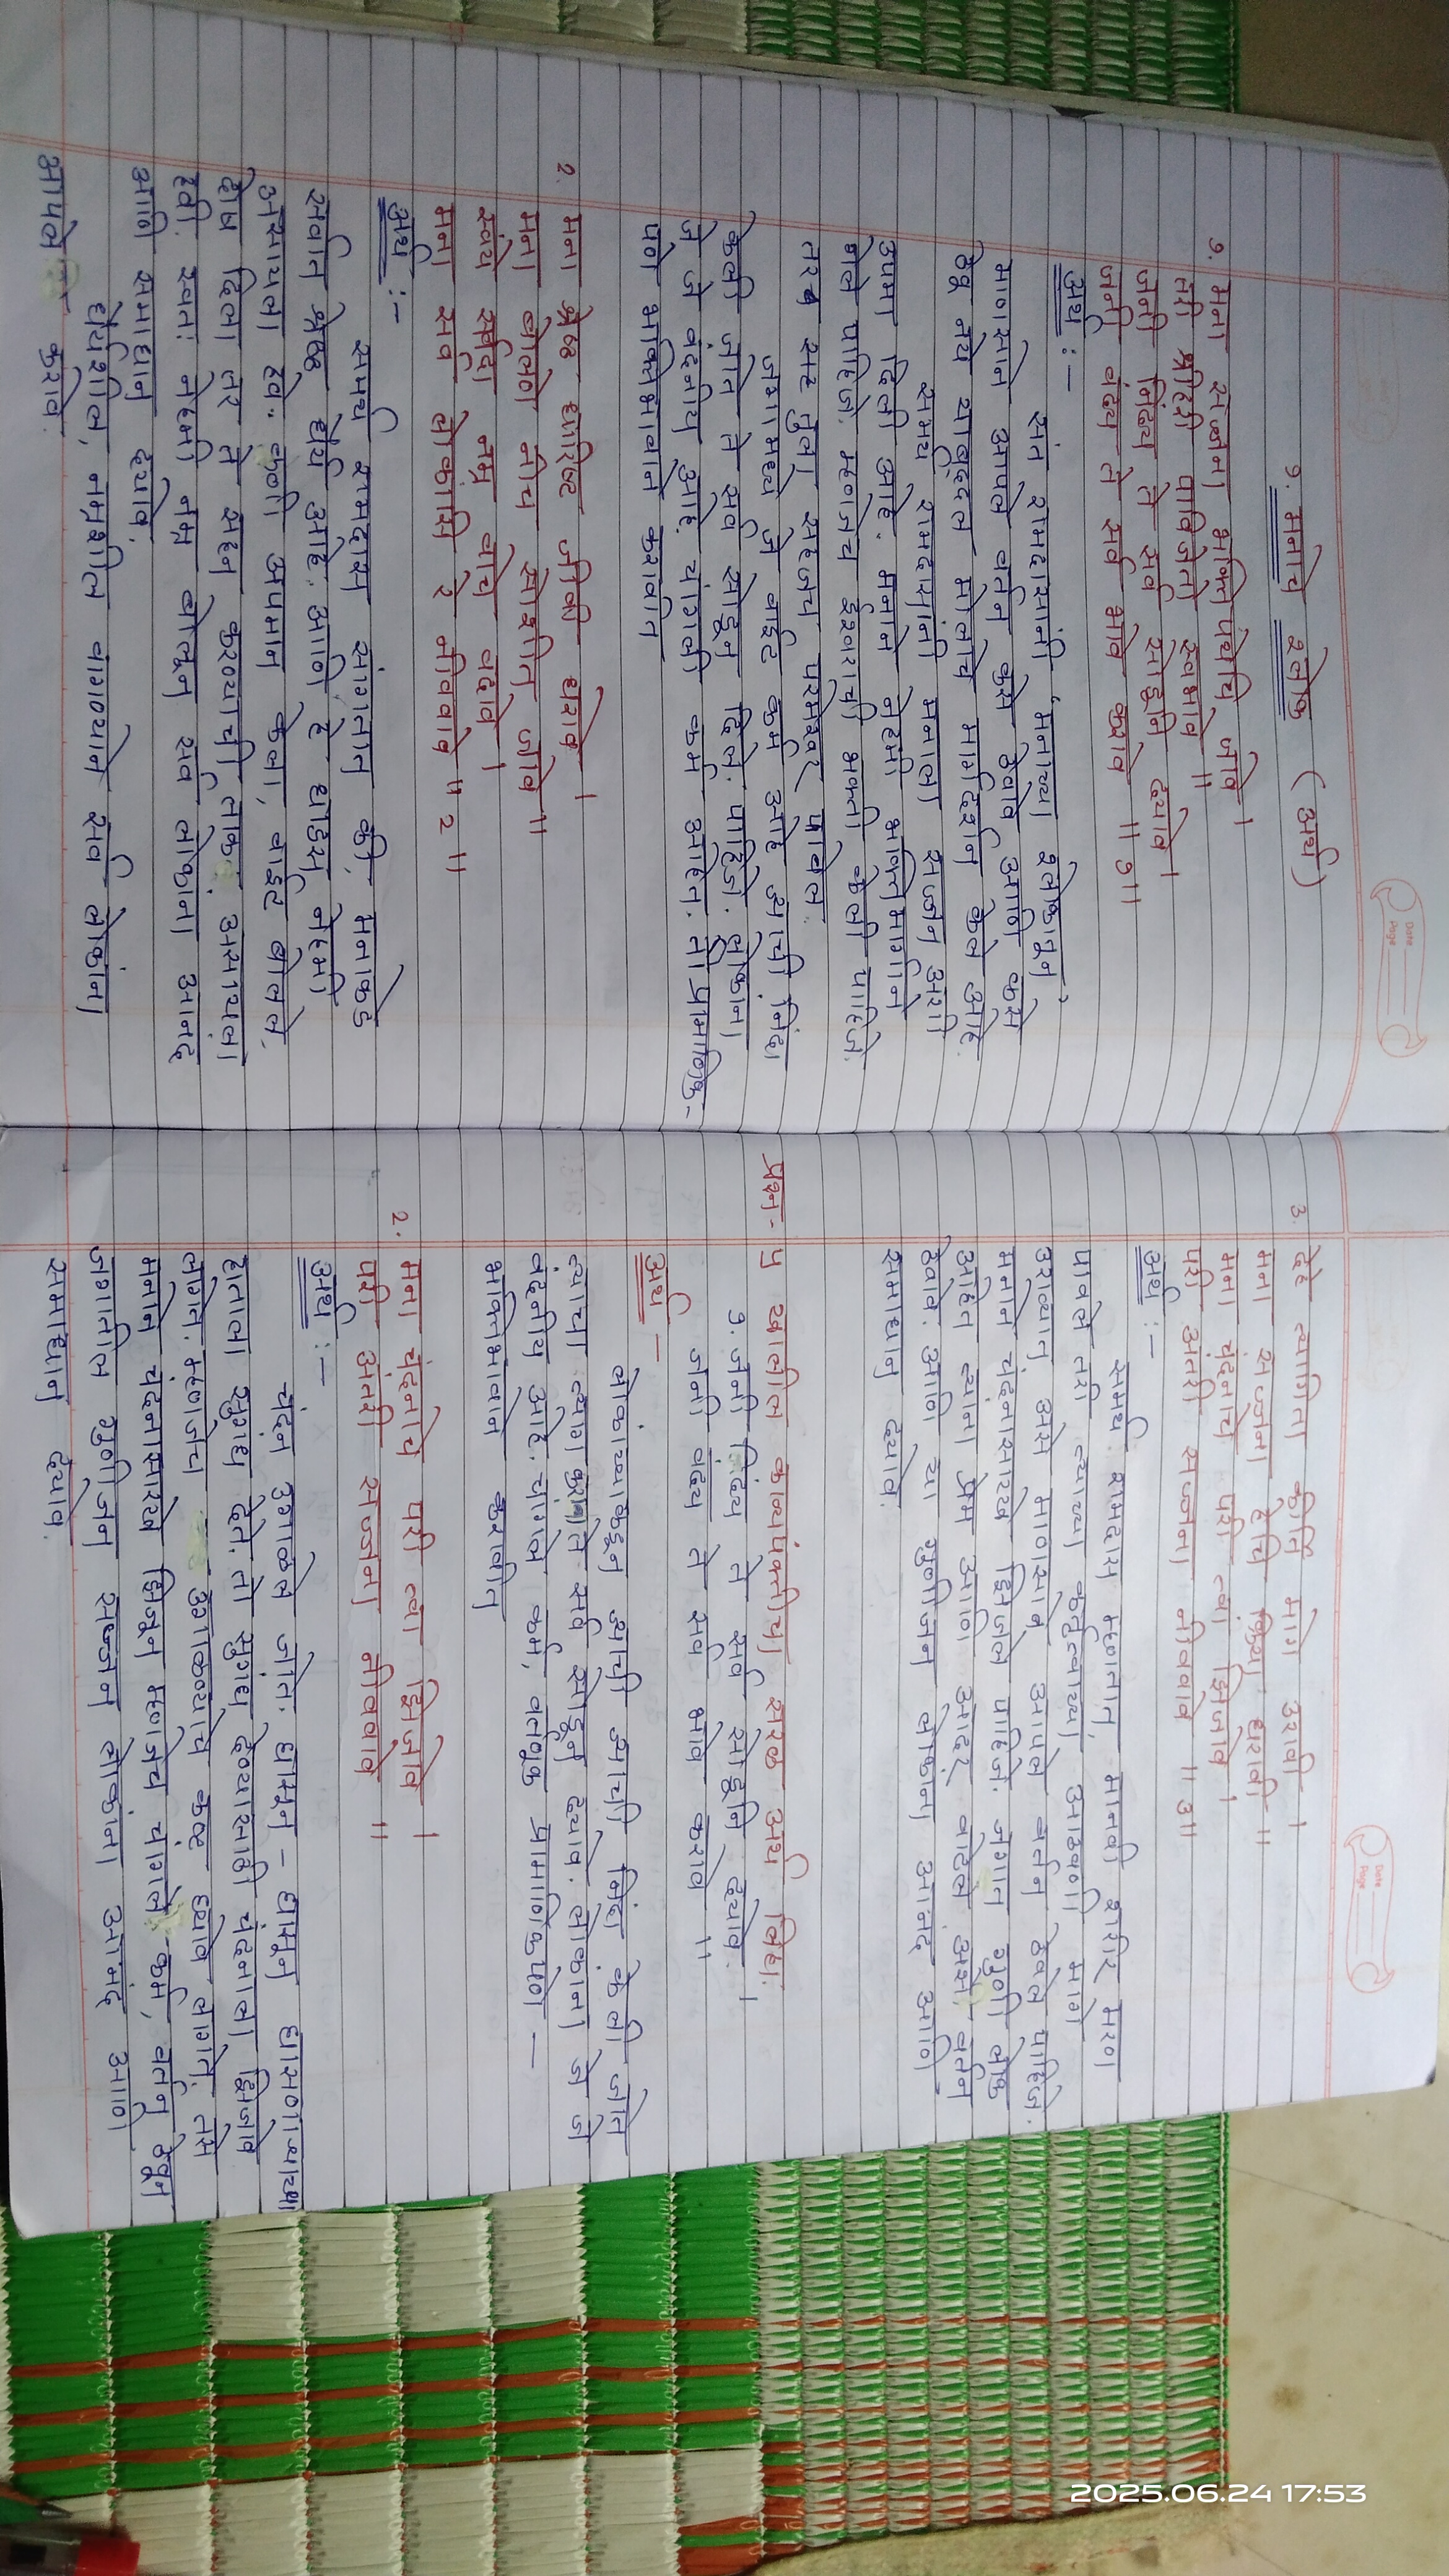 १. मनाचे श्लोक (अर्थ)
१. मना सज्जना भक्तिपंथेचि जावे ।
तरी श्रीहरी पाविजेतो स्वभावे ॥
जनी निंद्य ते सर्व सोडूनि द्यावे ।
जनी वंद्य ते सर्व भावे करावे ॥ १॥
अर्थ :–
संत रामदासांनी 'मनाच्या श्लोकातून'
माणसाने आपले वर्तन कसे ठेवावे आणि कसे
ठेवू नये याबद्दल मोलाचे मार्गदर्शन केले आहे.
समर्थ रामदासांनी मनाला सज्जन अशी
उपमा दिली आहे. मनाने नेहमी भक्तिमार्गाने
गेले पाहिजे. म्हणजेच ईश्वराची भक्ती केली पाहिजे.
तरच सर तुला सहजच परमेश्वर पावेल.
जगामध्ये जे वाईट कर्म आहे ज्याची निंदा
केली जाते ते सर्व सोडून दिले पाहिजे. लोकांना
जे जे वंदनीय आहे. चांगली कर्म आहेत. ती प्रामाणिक-
पणे भक्तिभावाने करावीत
2. मना श्रेष्ठ धारिष्ट जीवी धरावे ।
मना बोलणे नीच सोशीत जावे ॥
स्वये सर्वदा नम्र वाचे वदावे ।
मना सर्व लोकांसि रे नीववावे ॥ 2 ॥
अर्थ :–
समर्थ रामदास सांगतात की, मनाकडे
सर्वात श्रेष्ठ धैर्य आहे. आणि हे धाडस नेहमी
असायला हवे. कुणी अपमान केला, वाइट बोलले,
दोष दिला तर ते सहन करण्याची ताकद असायला
हवी. स्वतः नेहमी नम्र बोलून सर्व लोकांना आनंद
आणि समाधान द्यावे.
धैर्यशील, नम्रशील वागण्याने सर्व लोकांना
आपलेसे करावे.
3. देहे त्यागिता कीर्ति मागे उरावी ।
मना सज्जना हेचि क्रिया धरावी ॥
मना चंदनाचे परी त्वा झिजावे ।
परी अंतरी सज्जना नीववावे ॥ ३॥
अर्थ :–
समर्थ रामदास म्हणतात, मानवी शरीर मरण
पावले तरी त्याच्या कर्तृत्वाच्या आठवणी मागे
उराव्यात असे माणसाने आपले वर्तन ठेवले पाहिजे.
मनाने चंदनासारखे झिजले पाहिजे. जगात गुणी लोक
आहेत त्यांना प्रेम आणि आदर वाटेल असे वर्तन
ठेवावे. आणि या गुणीजन लोकांना आनंद आणि
समाधान द्यावे.
प्रश्न- ५ खालील काव्यपंक्तीचा सरळ अर्थ लिहा.
१. जनी निंद्य ते सर्व सोडूनि द्यावे. ।
जनी वंद्य ते सर्व भावे करावे ॥
अर्थ –
लोकांच्याकडून ज्याची ज्याची निंदा केली जाते
त्याचा त्याग करावा ते सर्व सोडून द्यावे. लोकांना जे जे
वंदनीय आहे. चांगले कर्म, वर्तणूक प्रामाणिकपणे –
भक्तिभावाने करावीत
2. मना चंदनाचे परी त्वा झिजावे ।
परी अंतरी सज्जना नीववावे ॥
अर्थ :–
चंदन उगाळले जाते. घासून – घासून घासणाऱ्याच्या
हाताला सुगंध देते. तो सुगंध देण्यासाठी चंदनाला झिजावे
लागते. म्हणजेच उगाळण्याचे कष्ट घ्यावे लागते. तसे
मनाने चंदनासारखे झिजून म्हणजेच चांगले कर्म, वर्तन ठेवून
जगातील गुणीजन सज्जन लोकांना आनंद आणि
समाधान द्यावे.
Date
Page
Date
Page
2025.06.24 17:53